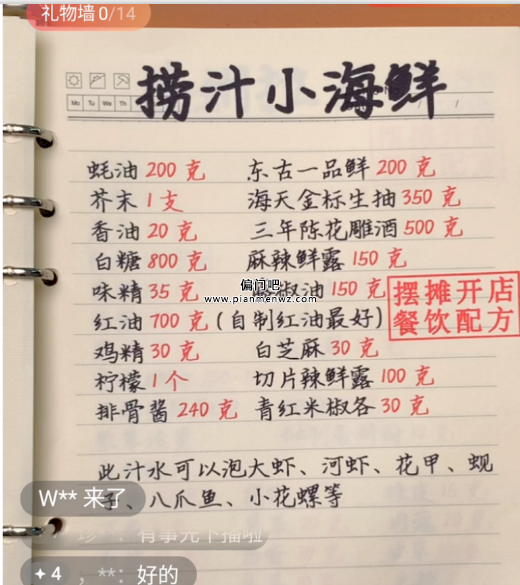 礼物墙 0/14
Mo Tu We Th
捞汁小海鲜
蚝油 200 克 东古一品鲜 200 克
芥末 1 支 海天金标生抽 350 克
香油 20 克 三年陈花雕酒 500 克
白糖 800 克 麻辣鲜露 150 克
偏门吧
味精 35 克 椒油 150 克
www.pianmenwz.com
摆摊开店
餐饮配方
红油 700 克 (自制红油最好)
鸡精 30 克 白芝麻 30 克
柠檬 1 个 切片辣鲜露 100 克
排骨酱 240 克 青红米椒各 30 克
此汁水可以泡大虾、河虾、花甲、蚬
、八爪鱼、小花螺等
W** 来了
有事先下播啦
4 , **: 好的